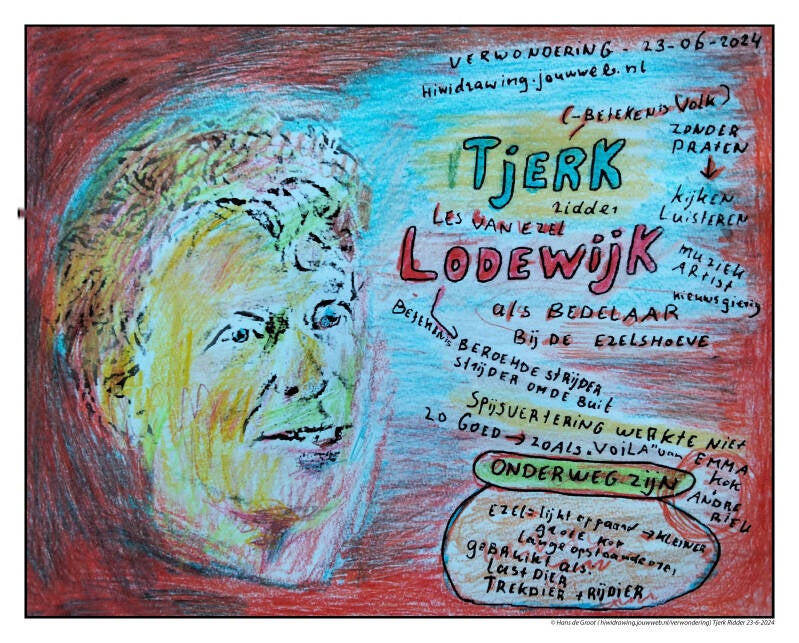 VERWONDERING - 23-06-2024
Hiwidrawing.jouwweb.nl
(-BETEKENIS VOLK)
TJERK
ridder
ZONDER
PRATEN
kijken
LUISTEREN
MUZIEK
ARTIST
nieuwsgierig
LES VAN EZEL
LODEWIJK
als BEDELAAR
BIJ DE EZELSHOEVE
BETEKENIS
BEROEMDE STRIJDER
STRIJDER OM DE BUIT
SPIJSVERTERING WERKTE NIET
ZO GOED → ZOALS "VOILA" van
EMMA
KOK
ANDRE
RIEU
ONDERWEG ZIJN
EZEL = lijkt op paard → KLEINER
GROTE KOP
Lange opstaande oren
GEBRUIKT ALS:
LASTDIER
TREKDIER + RIJDIER
© Hans de Groot ( hiwidrawing.jouwweb.nl/verwondering) Tjerk Ridder 23-6-2024